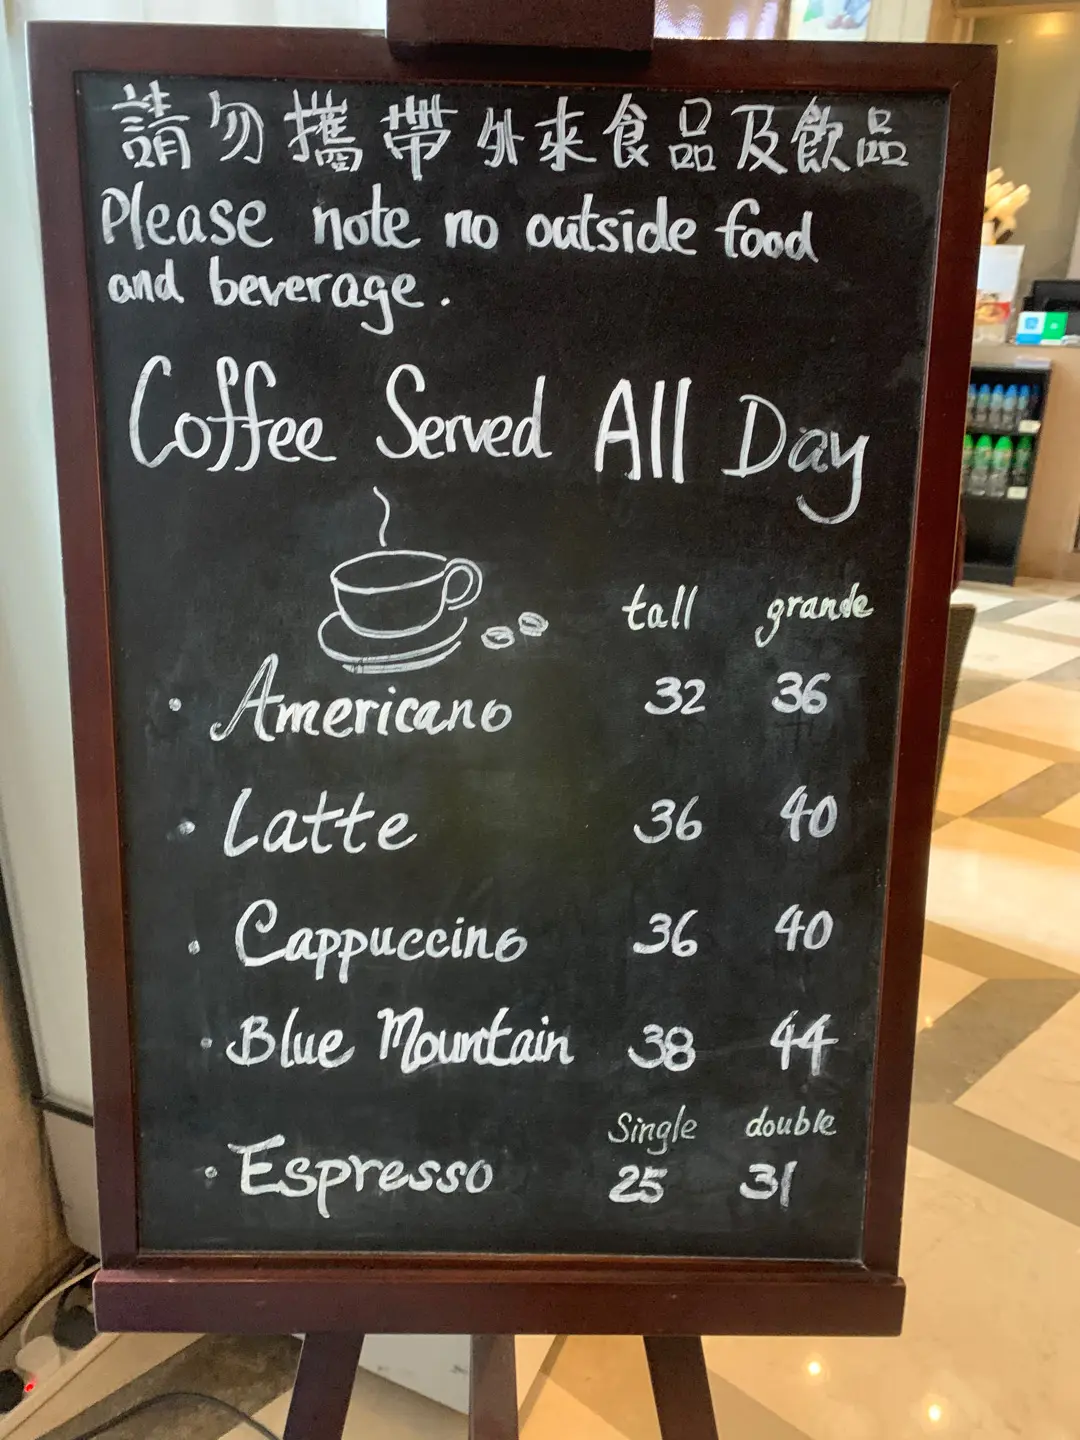 請勿攜帶外來食品及飲品
Please note no outside food
and beverage.
Coffee Served All Day
tall grande
· Americano 32 36
· Latte 36 40
· Cappuccino 36 40
· Blue Mountain 38 44
Single double
· Espresso 25 31